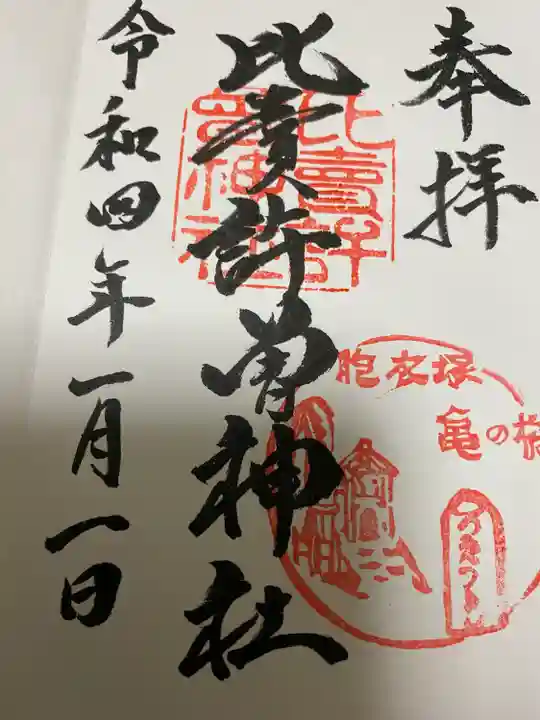 奉拝
比賣許曽神社
令和四年一月一日
比賣許
曽神社
胞衣塚
亀の橋